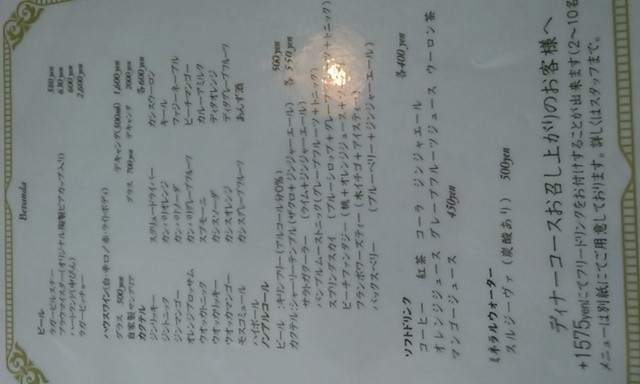 Beranda
ビール
ラガービルスター 580yen
ブラウマイスター(オリジナル陶製ビアカップ入り) 680yen
ハートランド(中びん) 600yen
ラガーピッチャー 2,600yen
ハウスワイン(白・辛口/赤・ライトボディ)
グラス 500yen デキャンタ(500ml) 1,600yen
自家製サングリア グラス 700yen デキャンタ 2000yen
カクテル 各600yen
ジンリッキー スクリュードライバー カシスウーロン
ジントニック カンパリオレンジ キール
ジンマンゴー カンパリソーダ ファジーネーブル
オレンジブロッサム カンパリグレープフルーツ ピーチマンゴー
ウオッカトニック スプモーニ カルーアミルク
ウオッカリッキー カシスソーダ ディタオレンジ
ウオッカマンゴー カシスオレンジ ディタグレープフルーツ
モスコミュール カシスグレープフルーツ あんず酒
ハイボール
ノンアルコール
ビール キリンフリー(アルコール分0%) 500yen
カクテル シャーリーテンプル(ザクロ+ジンジャーエール) 各 550yen
サラトガクーラー (ライム+ジンジャーエール)
バンブルムーストニック(グレープフルーツ+トニック)
スプリングスカイ (ブルーシロップ+グレープ
ピーチファンタジー (桃+オレンジジュース+ トニック)
フランボワーズティー (木イチゴ+アイスティー)
バックスベリー (ブルーベリー+ジンジャーエール)
ソフトドリンク
コーヒー 紅茶 コーラ ジンジャエール 各400yen
オレンジジュース グレープフルーツジュース ウーロン茶
マンゴージュース 450yen
ミネラルウォーター
スルジーヴァ(炭酸あり) 500yen
ディナーコースお召し上がりのお客様へ
+1575yenにてフリードリンクをお付けすることが出来ます(2～10名
メニューは別紙にてご用意しております。詳しくはスタッフまで。